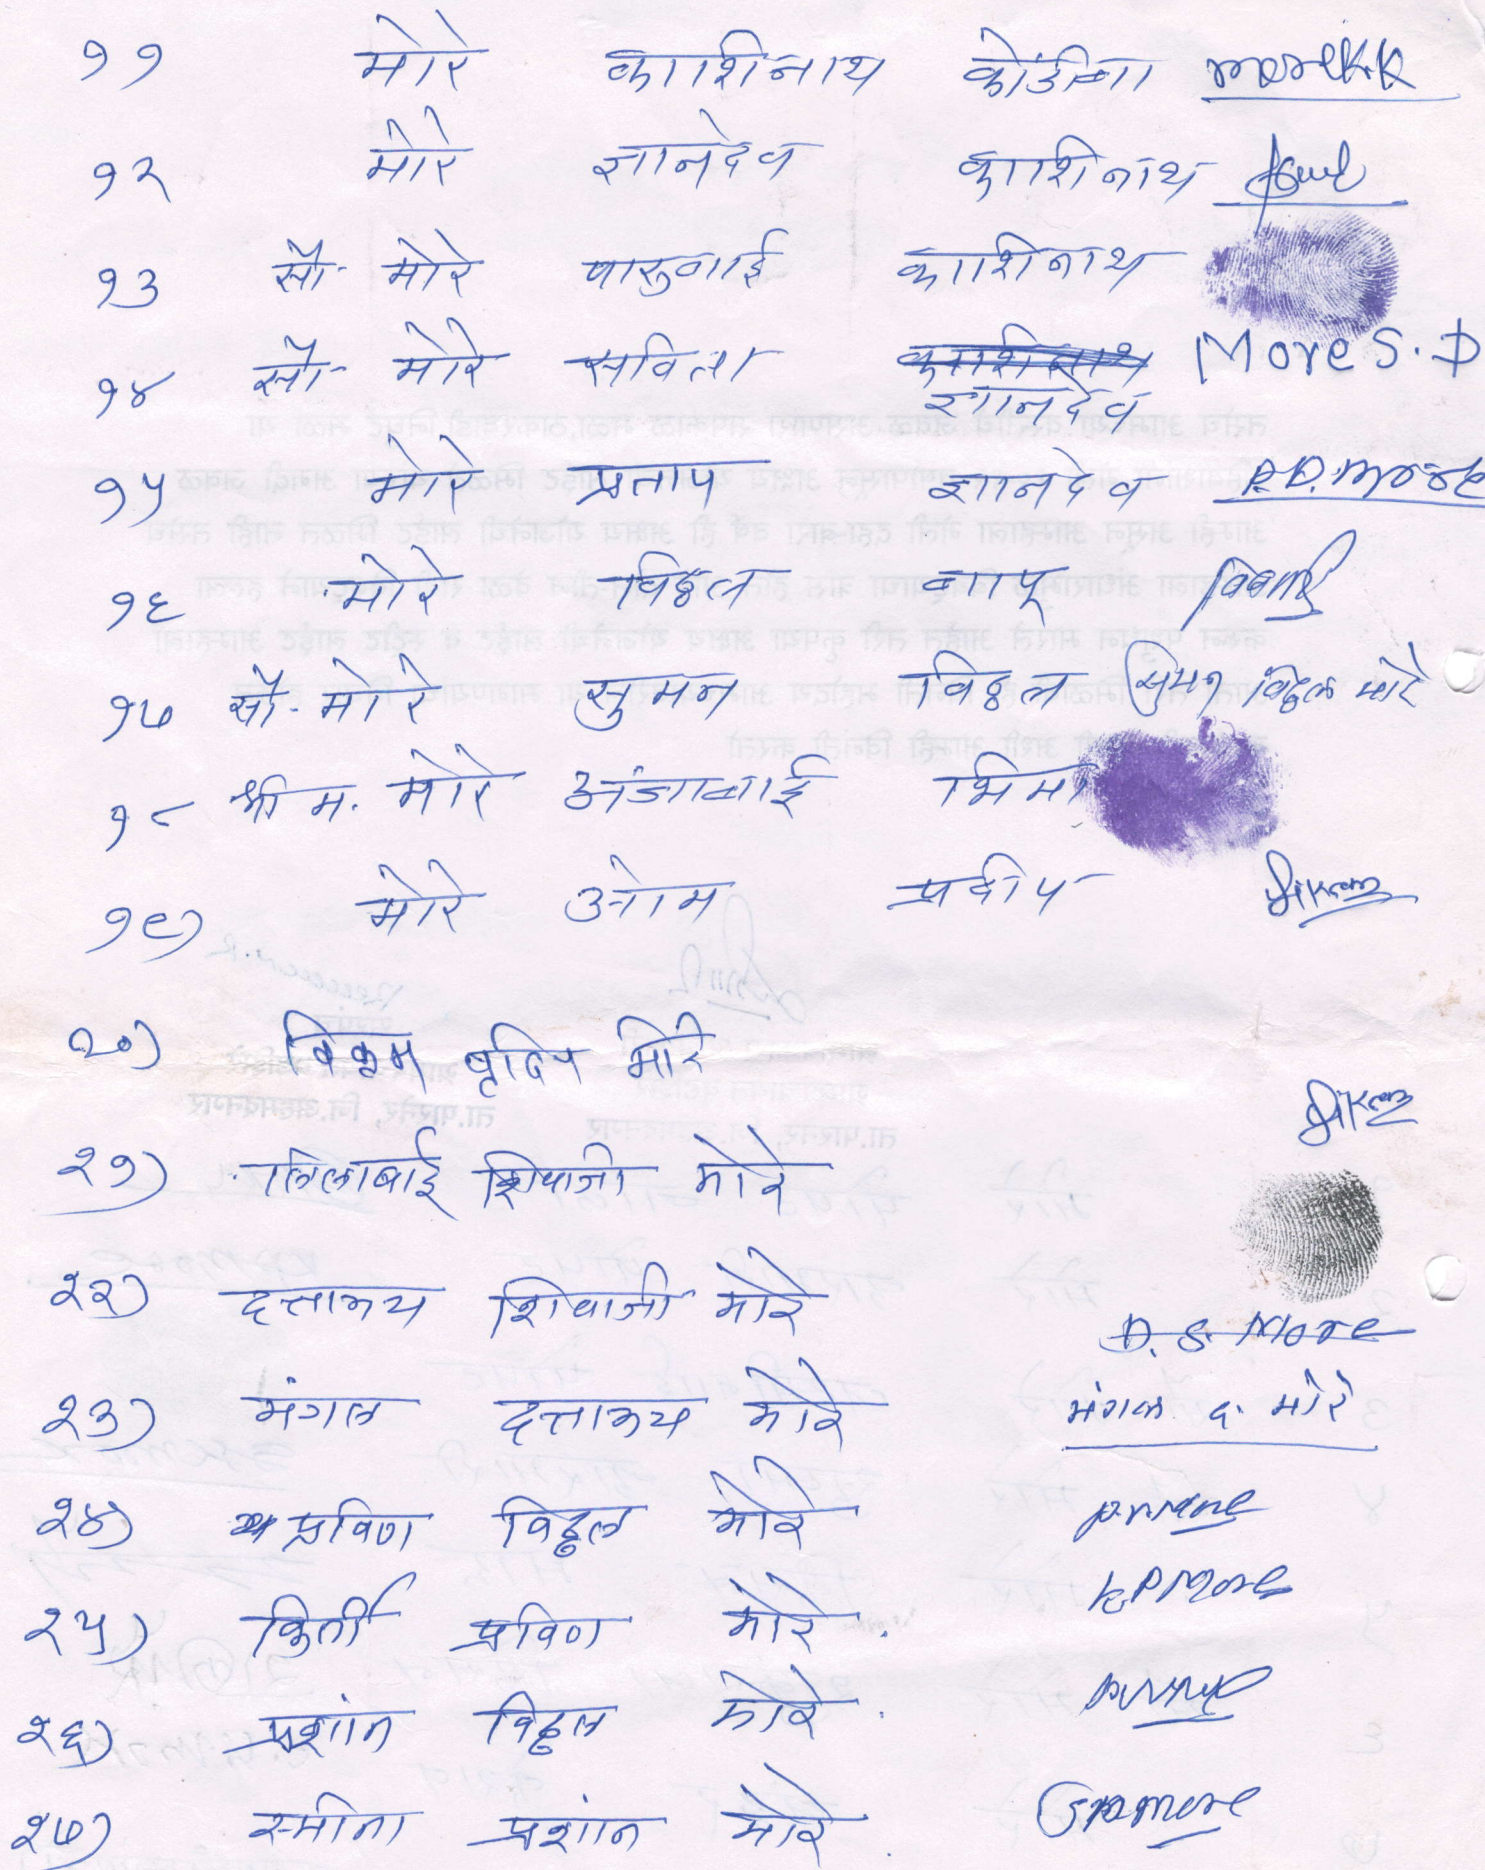 ११ मोरे काशिनाथ कोंडिबा moreKK
१२ मोरे ज्ञानदेव काशिनाथ
१३ सौ. मोरे पारुबाई काशिनाथ
१४ सौ. मोरे सविता काशिनाथ More S. D
ज्ञानदेव
१५ मोरे प्रताप ज्ञानदेव P. D. more
१६ मोरे विठ्ठल बापू
१७ सौ. मोरे सुमन विठ्ठल सुमन विठ्ठल मोरे
१८ श्रीम. मोरे अंजाबाई भिमा
१९) मोरे ओम प्रदीप
२०) विक्रम प्रदिप मोरे
२१) लिलाबाई शिवाजी मोरे
२२) दत्तात्रय शिवाजी मोरे D. S. More
२३) मंगल दत्तात्रय मोरे मंगल द. मोरे
२४) प्रविण विठ्ठल मोरे p.v.more
२५) किर्ती प्रविण मोरे. K P More
२६) प्रशांत विठ्ठल मोरे.
२७) स्मीता प्रशांत मोरे. S P more